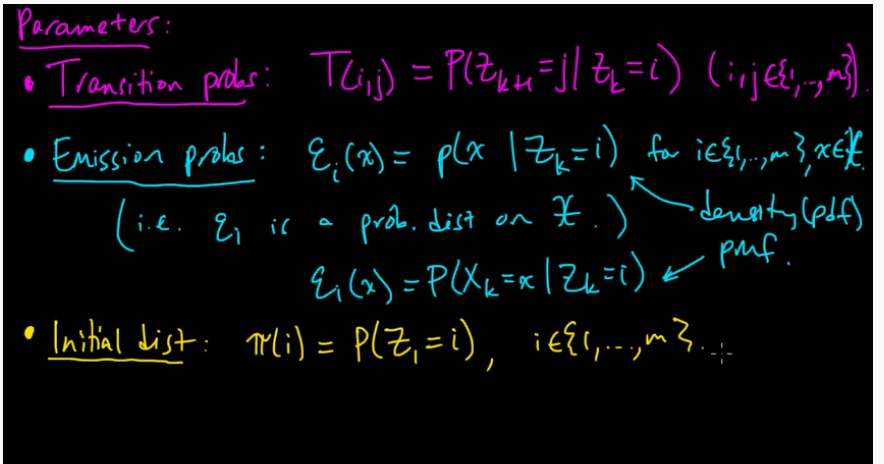 Parameters:
• Transition probs: T(i,j) = P(Z_{k+1}=j | Z_k=i) (i,j∈{1,..,m}).
• Emission probs: ε_i(x) = p(x | Z_k=i) for i∈{1,..,m}, x∈𝒳.
(i.e. ε_i is a prob. dist on 𝒳.) density (pdf)
ε_i(x) = P(X_k=x | Z_k=i) pmf.
• Initial dist: π(i) = P(Z_1=i), i∈{1,...,m}.